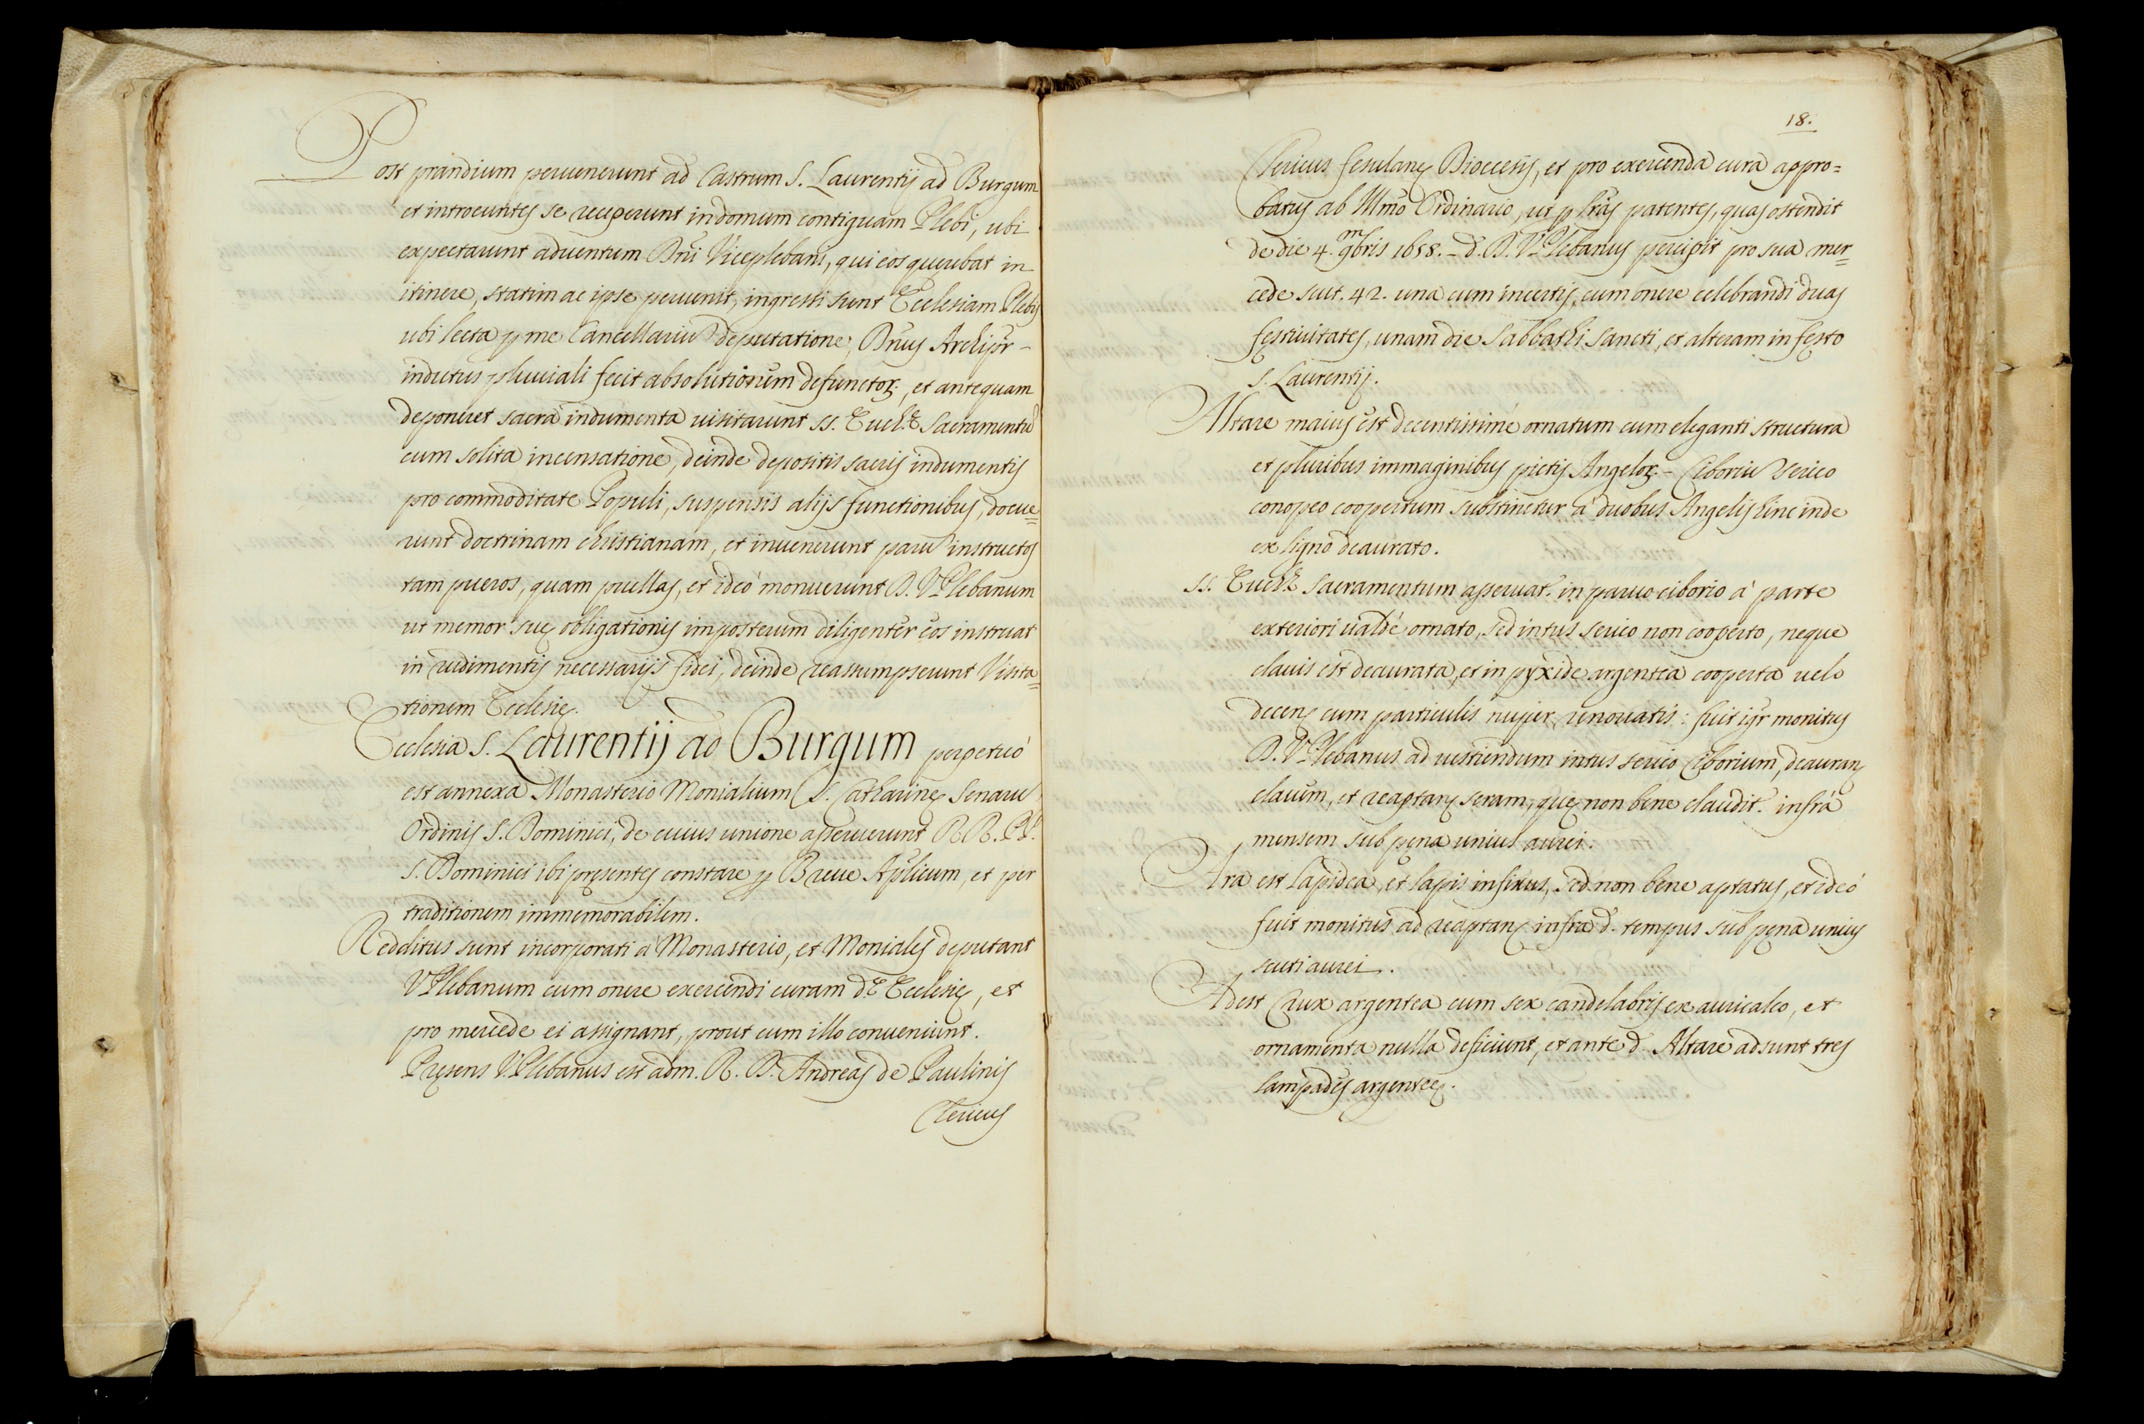 Post prandium peruenerunt ad Castrum S. Laurentij ad Burgum
et introeuntes se receperunt in domum contiguam Plebi, ubi
expectarunt aduentum Dñi Viceplebani, qui eos querebat in
itinere, statim ac ipse peruenit, ingressi sunt Ecclesiam Plebis
ubi lecta p me Cancellariũ deputatione, Dñus Archipr̃
indutus pluuiali fecit absolutionem defunctoꝝ, et antequam
deponeret sacra indumenta uisitarunt SS. Euch.ę Sacramentũ
cum solita incensatione, deinde depositis sacris indumentis
pro commoditate Populi, suspensis alijs functionibus, docue=
runt doctrinam christianam, et inuenerunt parũ instructos
tam pueros, quam puellas, et ideò monuerunt D. V.Plebanum
ut memor suę obligationis imposterum diligenter eos instruat
in rudimentis necessarijs fidei, deinde reassumpserunt Visita=
tionem Ecclesię.
Ecclesia S. Laurentij ad Burgum perpetuò
est annexa Monasterio Monialium S. Catharinę Senarũ
Ordinis S. Dominici, de cuius unione asseruerunt R R. P.P.
S. Dominici ibi pręsentes constare p Breue Aplicum, et per
traditionem immemorabilem.
Redditus sunt incorporati à Monasterio, et Moniales deputant
V.Plebanum cum onere exercendi curam d.ę Ecclesię, et
pro mercede ei assignant, prout cum illo conueniunt.
Pręsens V.Plebanus est adm. R. D. Andreas de Paulinis
Clericus
18.
Clericus fesulanę Dioecesis, et pro exercenda cura appro=
batus ab Illmo Ordinario, ut p lr̃as patentes, quas ostendit
de die 4. 9mbris 1658. - d. D. V.Plebanus percipit pro sua mer=
cede scut. 42. una cum incertis, cum onere celebrandi duas
festiuitates, unam die Sabbathi Sancti, et alteram in festo
S. Laurentij.
Altare maius est decentissimè ornatum cum eleganti structura
et pluribus immaginibus pictis Angeloꝝ - Ciboriũ serico
conopeo coopertum substinetur à duobus Angelis hinc inde
ex ligno deaurato.
SS. Euch.ę Sacramentum asseruat.r in paruo ciborio à parte
exteriori ualdè ornato, sed intus serico non cooperto, neque
clauis est deaurata, et in pyxide argentea cooperta uelo
decens cum particulis nuper renouatis: fuit igr̃ monitus
D. V.Plebanus ad uestiendum intus serico Ciborium, deauranę
clauem, et reaptanę seram, quę non bene claudit.r infrà
mensem sub pęna unius aurei.
Ara est lapidea, et lapis infixus, sed non bene aptatus, et ideò
fuit monitus ad reaptanę infra d. tempus sub pęna unius
scuti aurei.
Adest Crux argentea cum sex candelabris ex auricalco, et
ornamenta nulla deficiunt, et ante d. Altare adsunt tres
lampades argenteę.